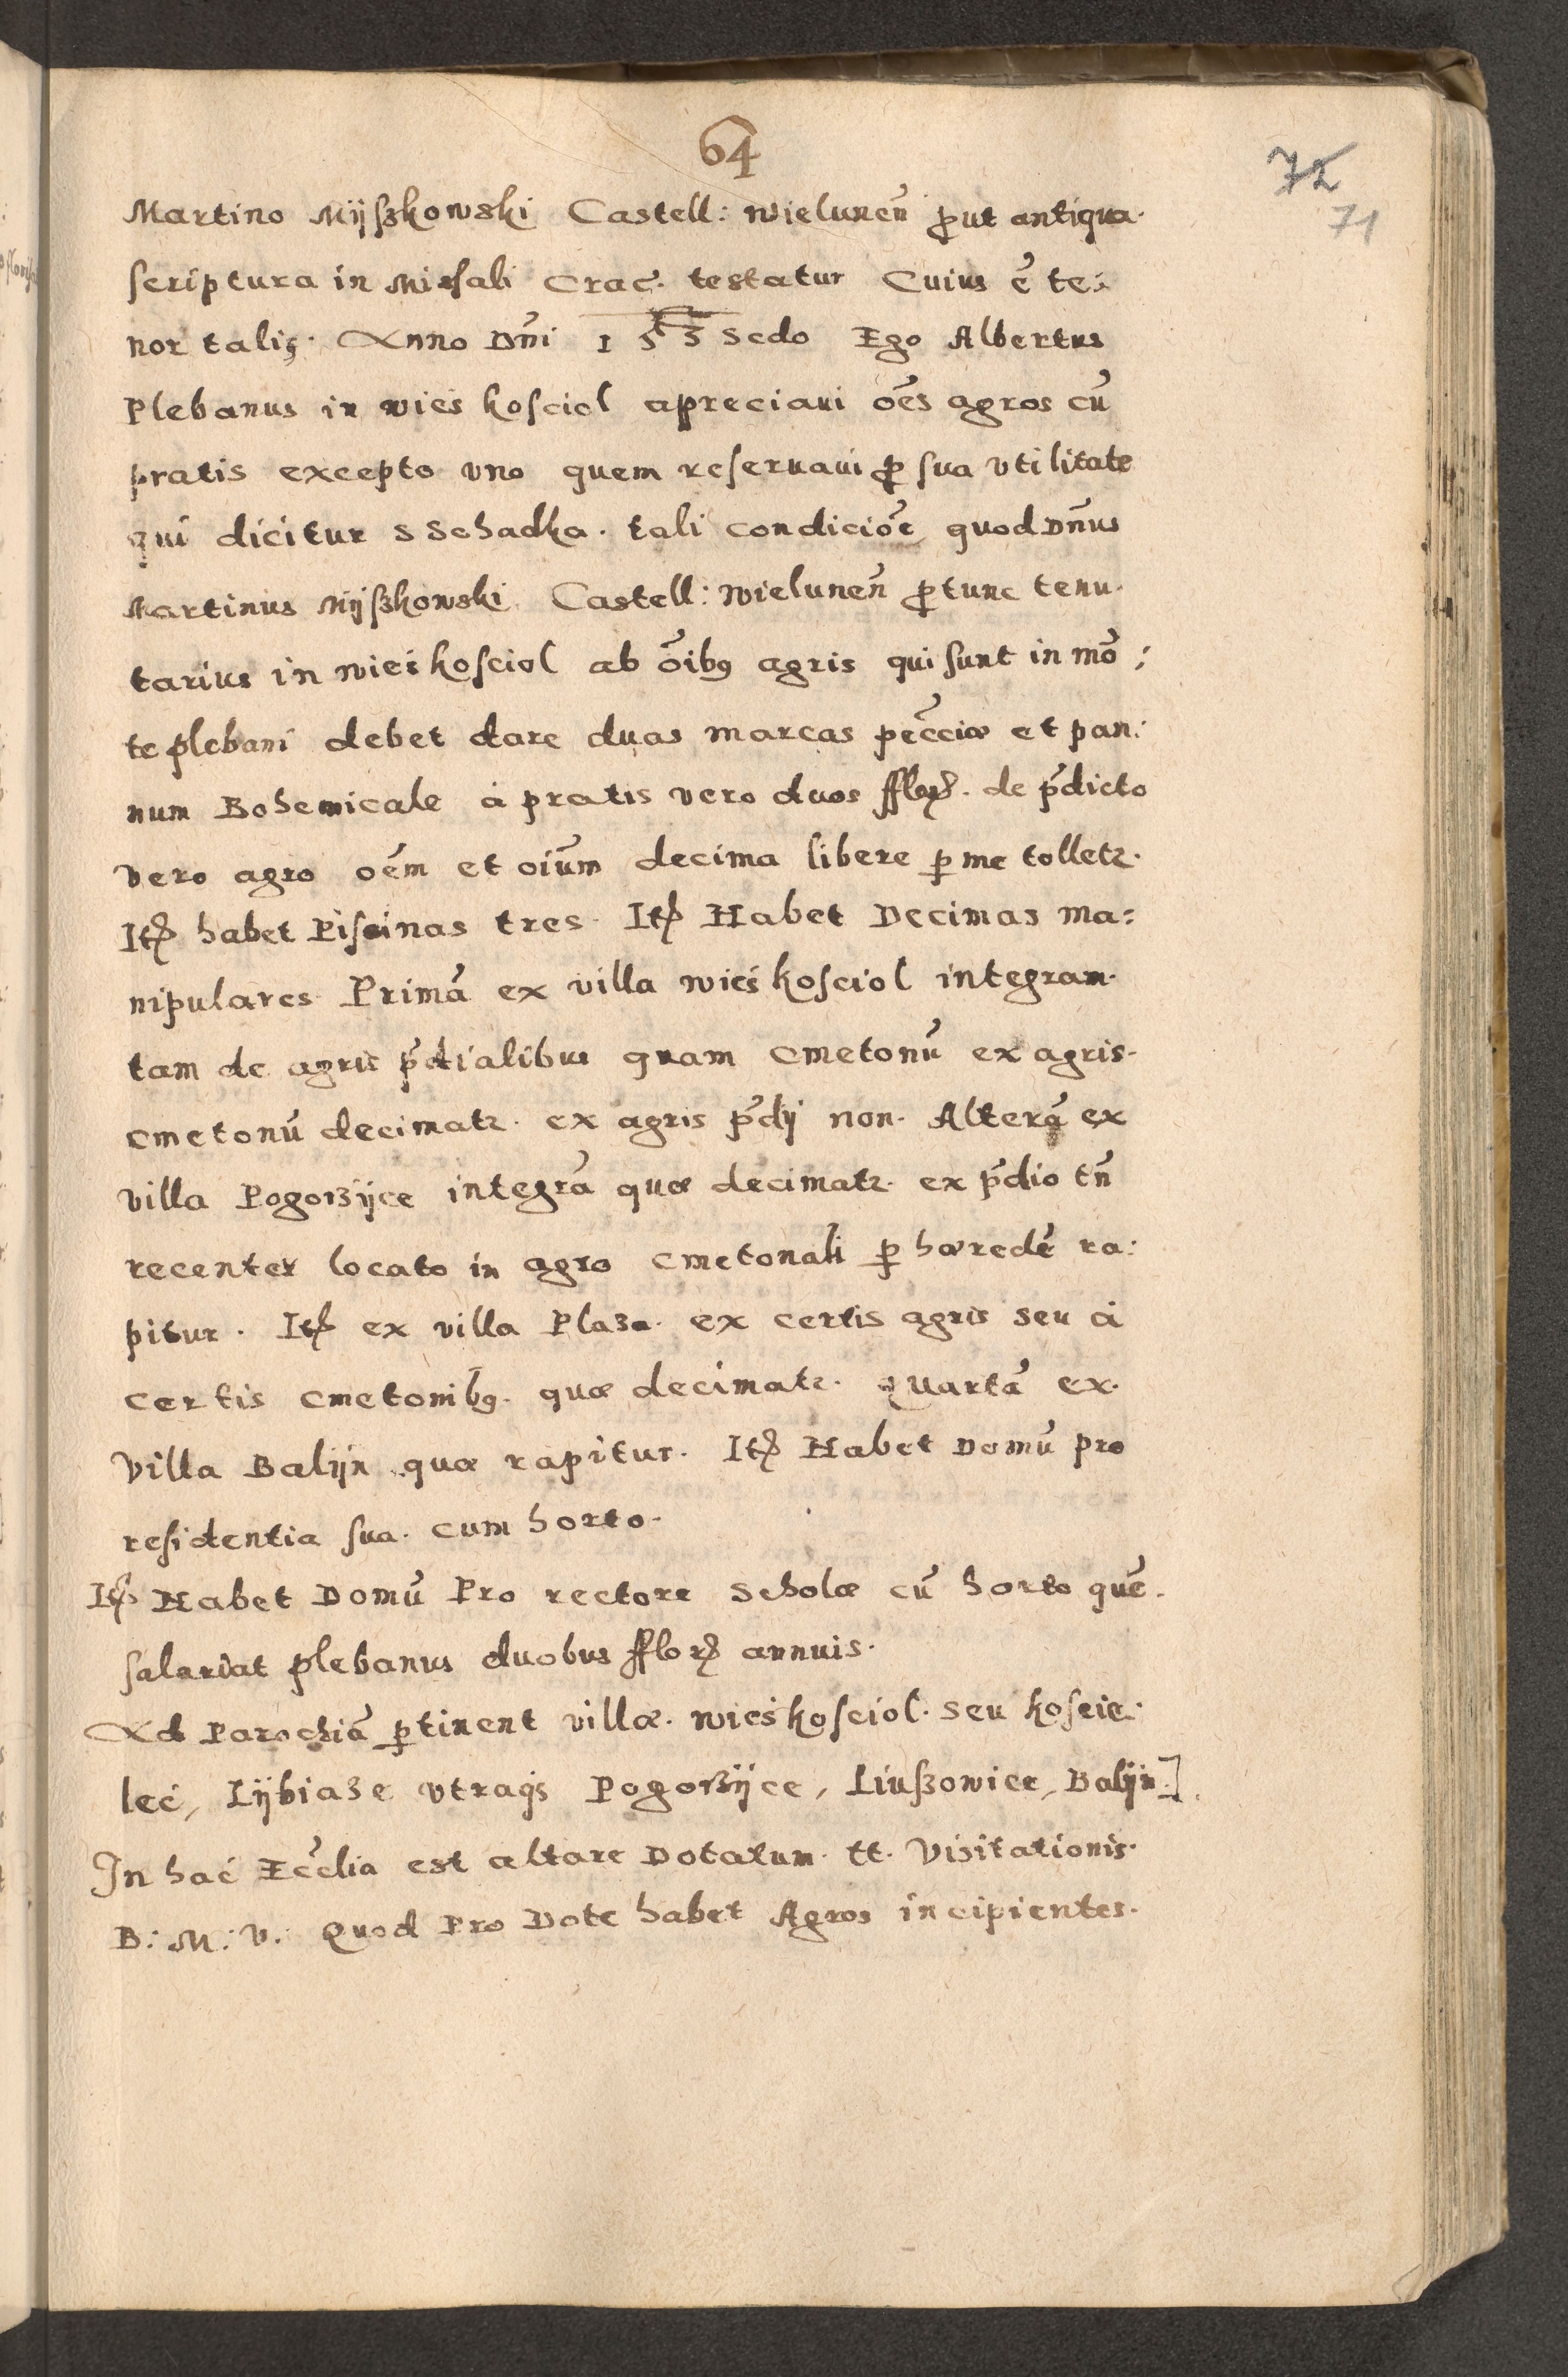 64
72
71
Martino Mijſzkowski Castell: Wielunen̄ ꝓut antiqua·
ſcriptura in Miſſali Crac̄. testatur Cuius ē te:
nor talis· Anno Dn̄i 153 Scdo Ego Albertus
Plebanus in wieś koſciol apreciaui oēs agros cū
pratis excepto vno quem reſeruaui ꝓ ſua vtilitate
qui dicitur SSchadka· tali condicioē quod Dn̄us
Martinus Mijſzkowski Castell: Wielunen̄ ꝓtunc tenu·
tarius in wieś koſciol ab oībꝰ agris qui ſunt in mō:
te plebani debet dare duas marcas pecc̄iæ et pan:
num Bohemicale à pratis vero duos fflor. de p̄dicto
vero agro oēm et oiūm decima libere ꝑ me tolletr.
Itꝫ habet Piſcinas tres· Itꝫ Habet Decimas ma:
nipulares Primā ex villa wieś koſciol integram·
tam de agris p̄dialibus quam cmetonū ex agris·
cmetonū decimatr. ex agris p̄dij non· Alterā ex
villa Pogorzijce integrā quæ decimatr. ex p̄dio tn̄
recenter locato in agro cmetonali ꝑ hæredē ra:
pitur· Itꝫ ex villa Plaza· ex certis agris seu à
certis cmetonibꝰ· quæ decimatr. Quartā ex·
villa Balijn quæ rapitur· Itꝫ Habet Domū pro
reſidentia ſua· cum horto·
Itꝫ Habet Domū Pro rectore Scholæ cū horto quē·
ſalariat plebanus duobus fflorꝫ annuis·
Ad Parochiā ꝑtinent villæ· wieś koſciol· seu koſcie:
leć, Lijbiaze vtraqꝫ Pogorzijce, Liuſzowice, Balijn]
In hac Ecc̄lia est altare Dotatum· tt. Viſitationis·
B: M: V: Quod Pro Dote habet Agros incipientes·